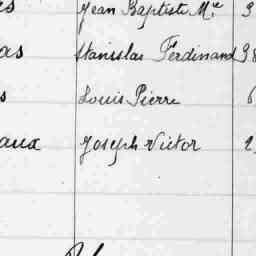 es Jean Baptiste Mie 3
as Stanislas Ferdinand 38
s Louis Pierre 6
aux Joseph Victor 2